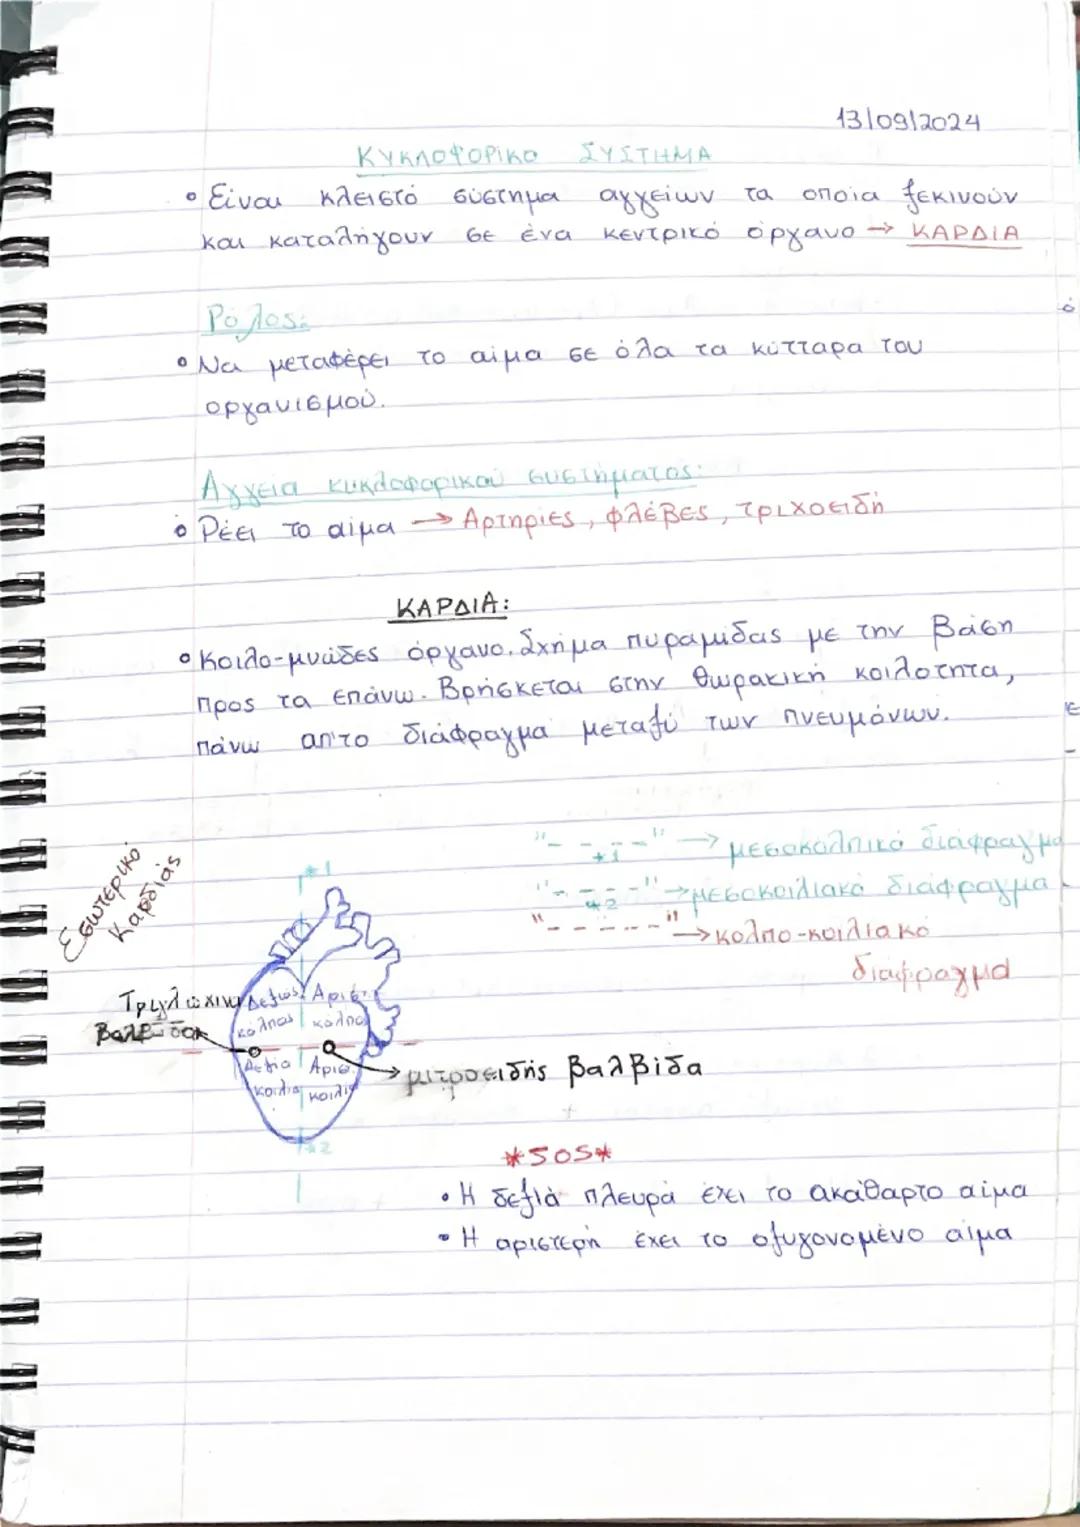 13/09/2024
ΚΥΚΛΟΦΟΡΙΚΟ ΣΥΣΤΗΜΑ
• Είναι κλειστό σύστημα αγγείων τα οποία ξεκινούν
και καταλήγουν σε ένα κεντρικό όργανο → ΚΑΡΔΙΑ
Ρόλος:
• Να μεταφέρει το αίμα σε όλα τα κύτταρα του
οργανισμού.
Αγγεία κυκλοφορικού συστήματος:
• Ρέει το αίμα → Αρτηρίες, φλέβες, τριχοειδή
ΚΑΡΔΙΑ:
• Κοιλο-μυώδες όργανο. Σχήμα πυραμίδας με την Βάση
προς τα επάνω. Βρήσκεται στην θωρακική κοιλότητα,
πάνω απ'το διάφραγμα μεταξύ των πνευμόνων.
"- - - -" → μεσοκολπικό διάφραγμα
*1
"- - - -" → μεσοκοιλιακό διάφραγμα
*2
"- - - - -" → κολπο-κοιλιακό
διάφραγμα
Εσωτερικό
Καρδιάς
*1
Τριγλώχινα
Βαλβίδα
Δεξιός Αριστ.
κόλπος κόλπο
Δεξιά Αρισ.
κοιλία κοιλί
→ μιτροειδής βαλβίδα
*2
*SOS*
• Η δεξιά πλευρά έχει το ακάθαρτο αίμα
• Η αριστερή έχει το οξυγονομένο αίμα